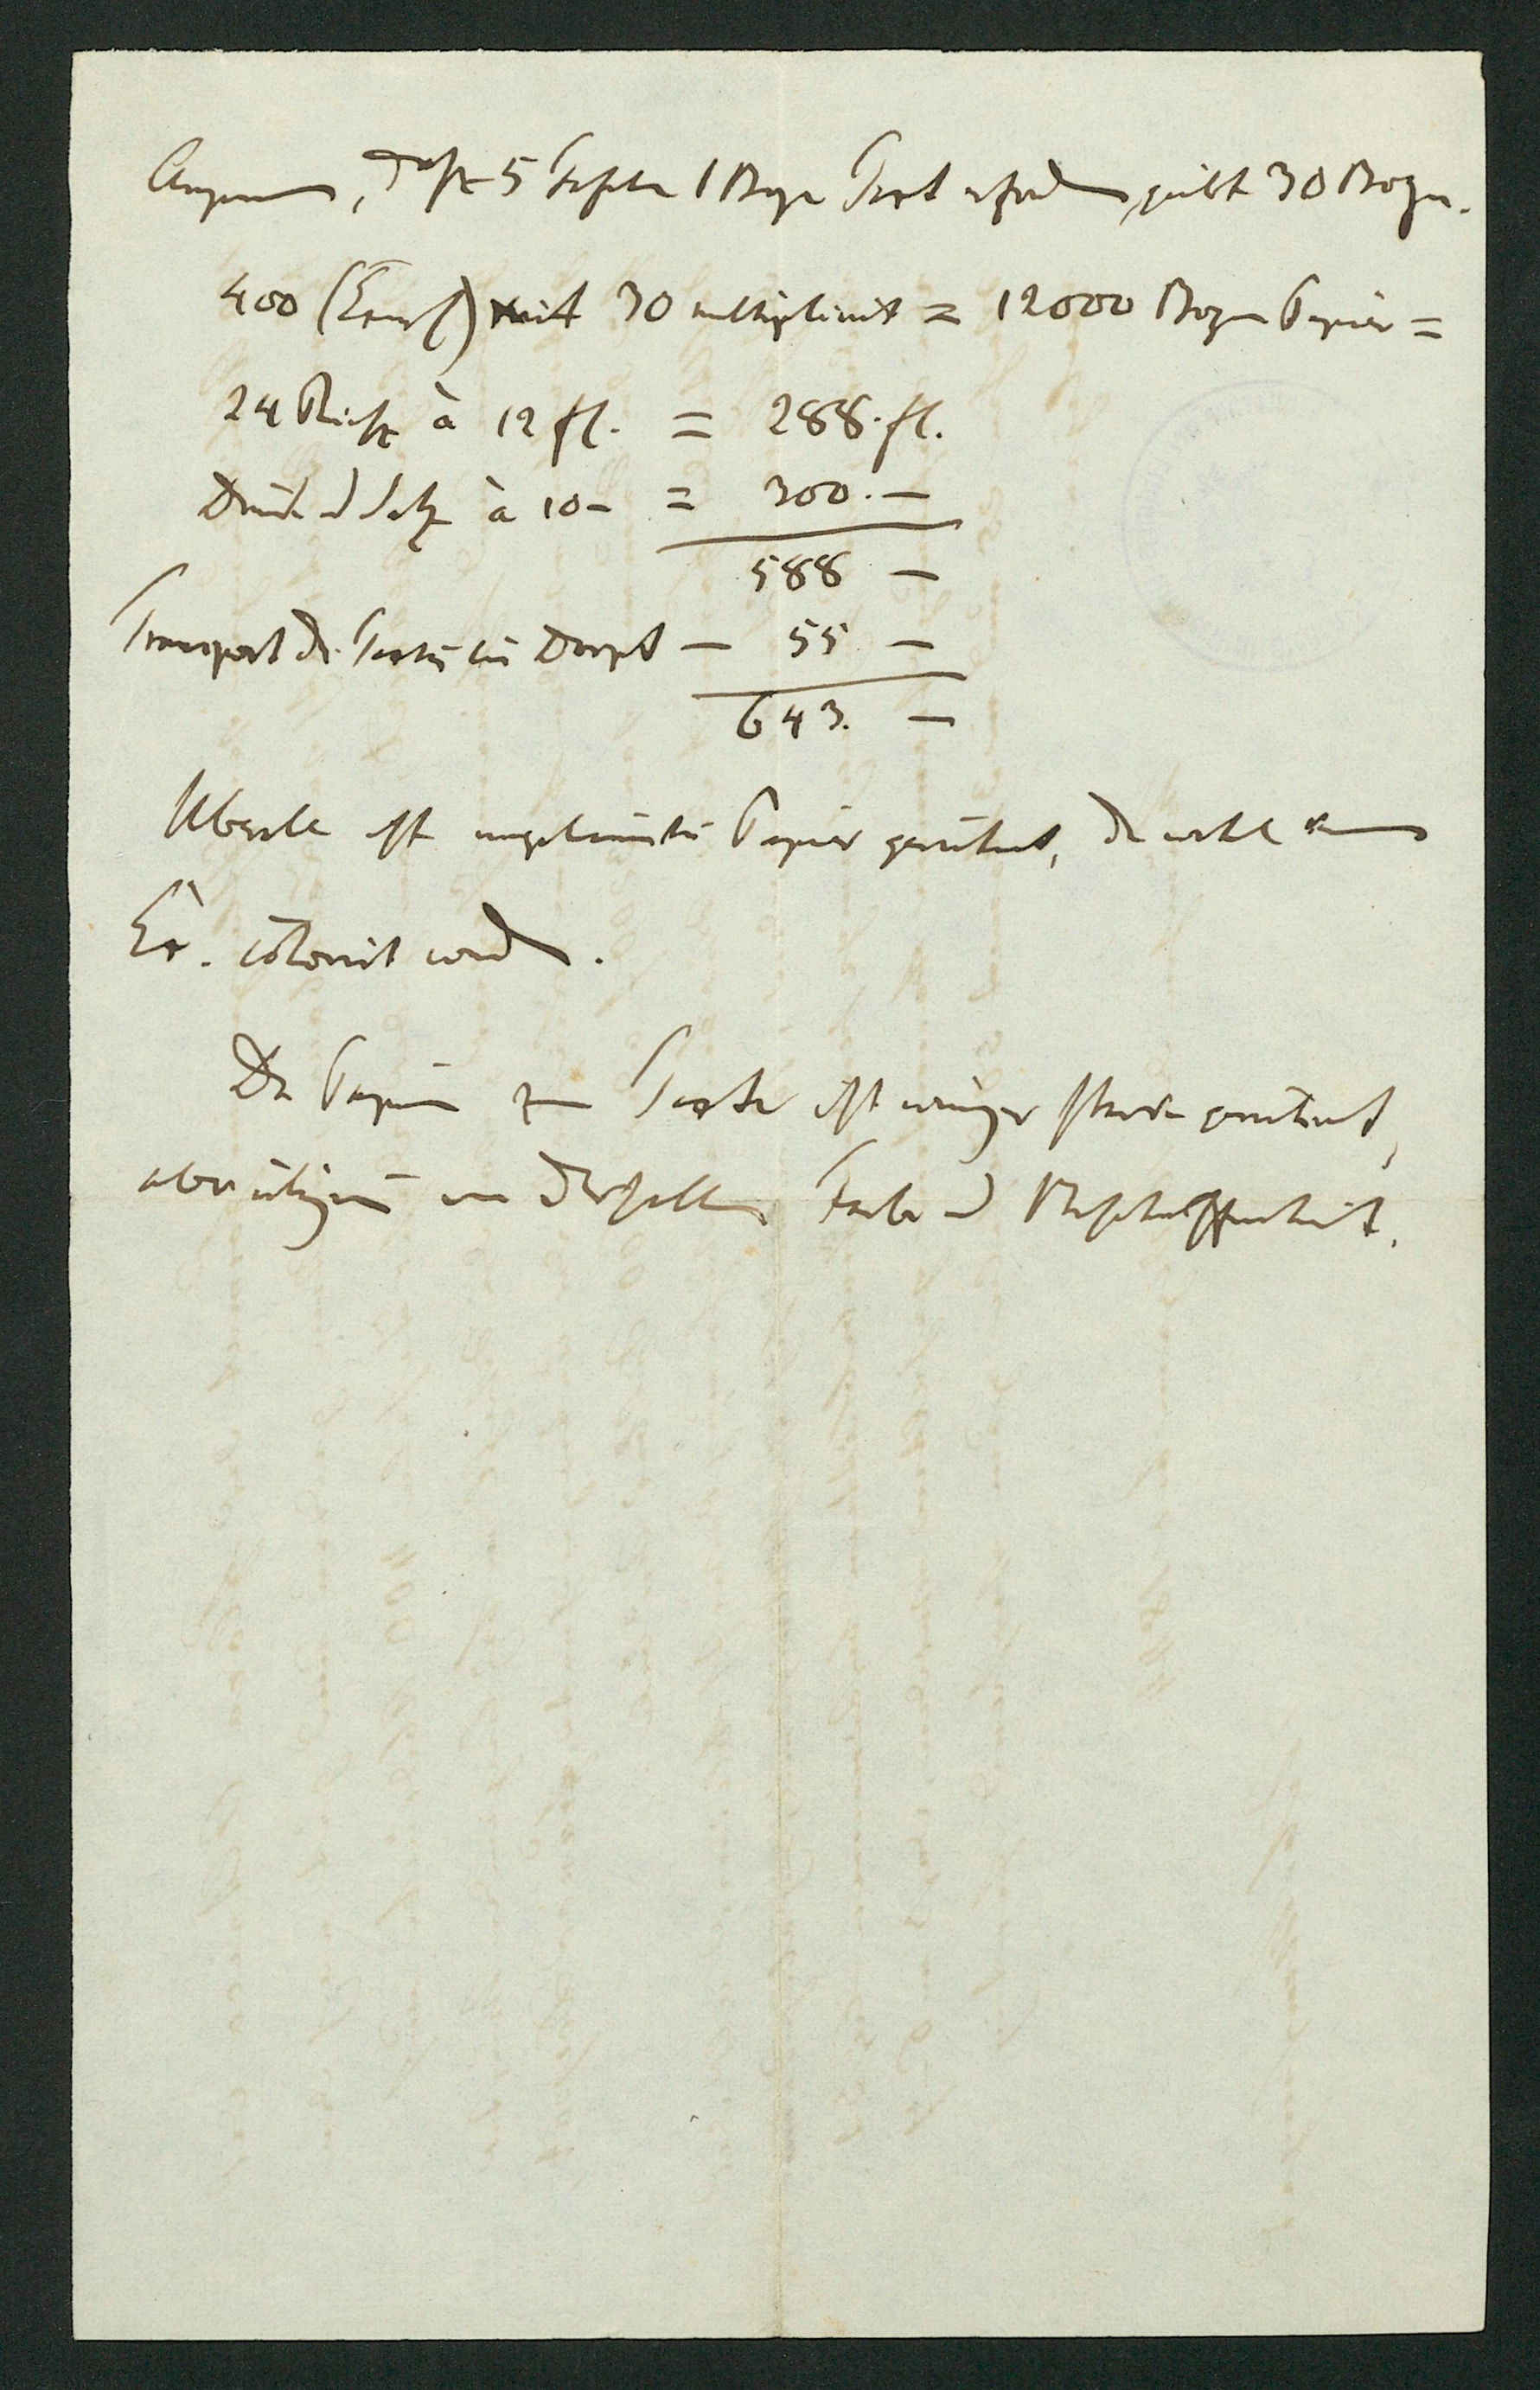 Angenommen, dass 5 Tafeln 1 Bogen Text erfordern, giebt 30 Bogen.
400 (Exempl) mit 30 multiplicirt = 12000 Bogen Papier =
24 Riess à 12 fl. = 288. fl.
Druck u Satz à 10 – = 300. –
588 –
Transport des Textes bis Dorpat – 55 –
643. –
Überall ist ungeleimtes Papier gerechnet, da wohl
Ex. colorirt werden.
Das Papier zum Texte ist weniger stark gerechnet,
aber übrigens von derselben Farbe u Beschaffenheit.